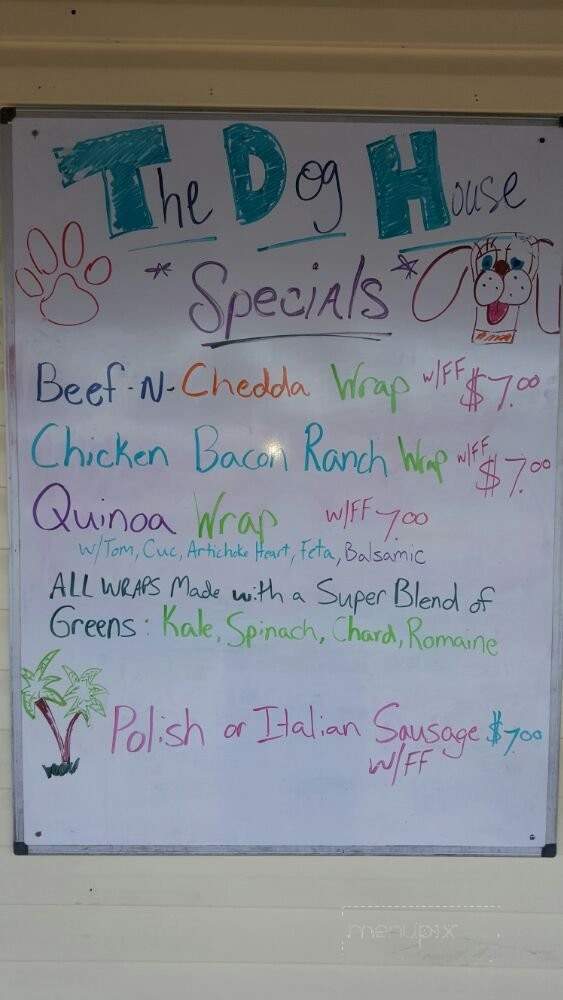 The Dog House
* Specials *
Beef-N-Chedda Wrap w/FF $7.00
Chicken Bacon Ranch Wrap w/FF $7.00
Quinoa Wrap w/FF 7.00
w/Tom, Cuc, Artichoke Heart, Feta, Balsamic
ALL WRAPS Made with a Super Blend of
Greens: Kale, Spinach, Chard, Romaine
Polish or Italian Sausage $7.00
w/FF
menupix